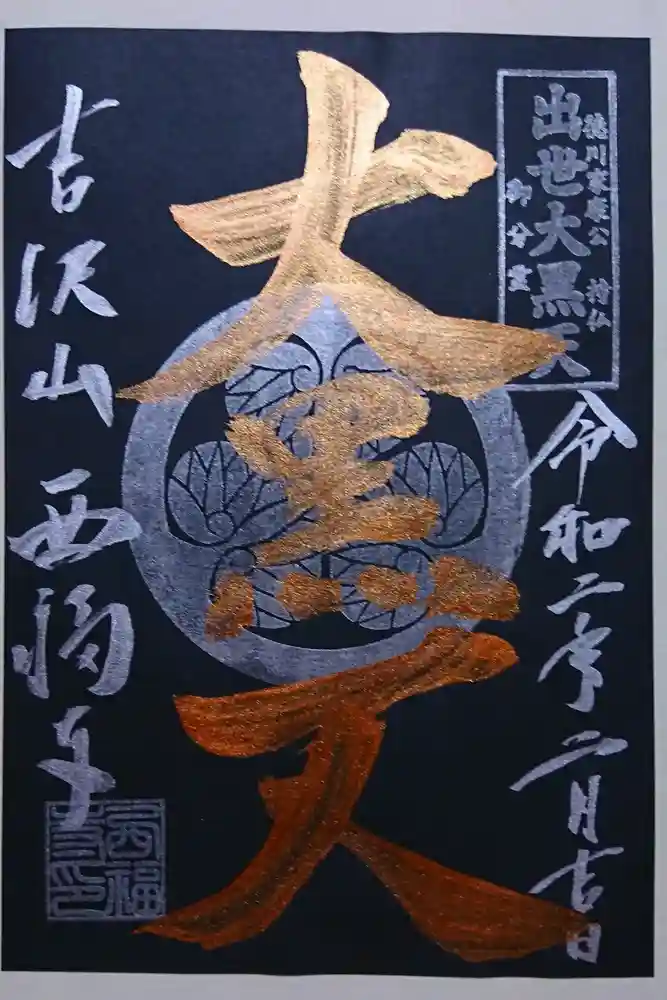 徳川家康公 持仏
出世大黒天
御分霊
令和二年二月吉日
大黒天
吉沢山 西福寺
西福寺印